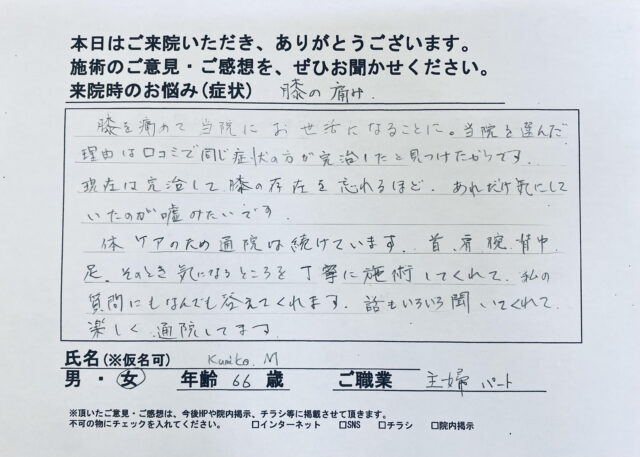 本日はご来院いただき、ありがとうございます。
施術のご意見・ご感想を、ぜひお聞かせください。
来院時のお悩み(症状) 膝の痛み.
膝を痛めて当院にお世話になることに。当院を選んだ
理由は口コミで同じ症状の方が完治したと見つけたからです.
現在は完治して膝の存在を忘れるほど. あれだけ気にして
いたのが嘘みたいです.
体ケアのため通院は続けています. 首、肩、腕、背中
足. そのとき気になるところを丁寧に施術してくれて、私の
質問にもなんでも答えてくれます. 話もいろいろ聞いてくれて
楽しく通院してます
氏名(※仮名可) Kumiko. M
男・女 年齢 66 歳 ご職業 主婦 パート
※頂いたご意見・ご感想は、今後HPや院内掲示、チラシ等に掲載させて頂きます。
不可の物にチェックを入れてください。 □インターネット □SNS □チラシ □院内掲示